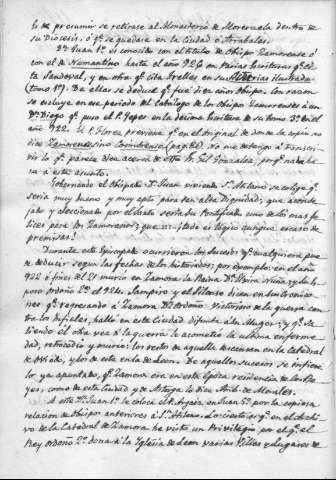 lo de presumir se retirase al Monasterio de Moreruela dentro de
su Diócesis, ó q.e se quedase en la Ciudad ó Arrabales.
Dn Juan 1º es conocido con el titulo de Obispo Zamorense ó
con el de Numantino hasta el año 926 en varias escrituras q.e cita
Sandoval, y en otra q.e cita Trelles en su Asturias ilustrada
(tomo 1º). De ellas se deduce q.e fué diez años Obispo. Con razon
se excluye en ese periodo del Catálogo de los Obispos Zamorenses á un
Dn Diego q.e puso el P. Yepes en la décima escritura de su tomo 3º en el
año 922. El P. Florez previene q.e en el original de donde la copio no
dice Zamorensis sino
lo q.e parecia decir acerca de otro Dn Gil Gonzalez, por q.e nada hace
á este asunto.
Gobernando el Obispado Dn Juan viviendo Sn Atilano se colige q.e
seria muy bueno y muy apto para tan alta Dignidad, que aconsejado
y aleccionado por el Santo seria su Pontificado uno de los mas felices
para los Zamorenses; que
premisas?
Durante este Episcopado ocurrieron los sucesos q.e cualquiera puede
deducir segun las fechas de los historiadores; por ejemplo: en el año
922 á fines del 21 murió en Zamora la Reina Dª Elvira Nuña; y de
Ordoño 2º el 924. Sampiro y el Silense dicen
q.e regresando á Zamora Dn Ordoño victorioso de la guerra contra
los infieles, halló en esta Ciudad difunta á la Muger; y q.e saliendo
él otra vez á la guerra le acometió la ultima enfermedad,
retrocedió y murió: los restos de aquella descansan en la Catedral
de Oviedo, y los de este en la de Leon. De aquellos sucesos se infiere
lo ya apuntado, q.e Zamora era en esta época residencia de los Reyes,
como de esta Ciudad y de Astorga lo dice Amb. de Morales.
A este Dn Juan 1º le coloca el P. Argaiz en Juan 5º por la copiosa
relacion de Obispos anteriores á Sn Atilano. Lo cierto es q.e en el Archivo
de la Catedral de Zamora he visto un Privilegio por el q.e el
Rey Ordoño 2º dona á la Iglesia de Leon varias Villas y Lugares de